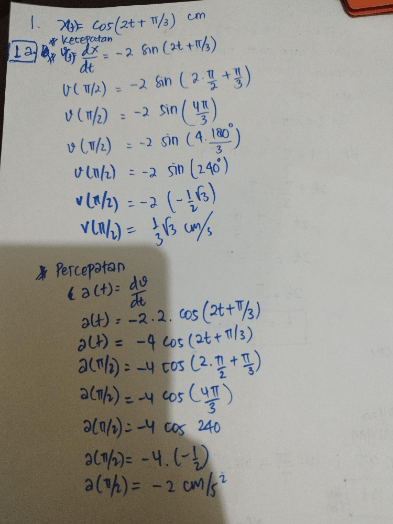 1. x(t)= cos(2t + π/3) cm
* Kecepatan
1 a. * v(t) = dx/dt = -2 sin (2t + π/3)
v(π/2) = -2 sin (2.π/2 + π/3)
v(π/2) = -2 sin (4π/3)
v(π/2) = -2 sin (4.180°/3)
v(π/2) = -2 sin (240°)
v(π/2) = -2 (-1/2√3)
v(π/2) = 1/3√3 cm/s
* Percepatan
a(t) = dv/dt
a(t) = -2.2. cos(2t+π/3)
a(t) = -4 cos(2t+π/3)
a(π/2) = -4 cos (2.π/2 + π/3)
a(π/2) = -4 cos (4π/3)
a(π/2) = -4 cos 240
a(π/2) = -4.(-1/2)
a(π/2) = -2 cm/s²